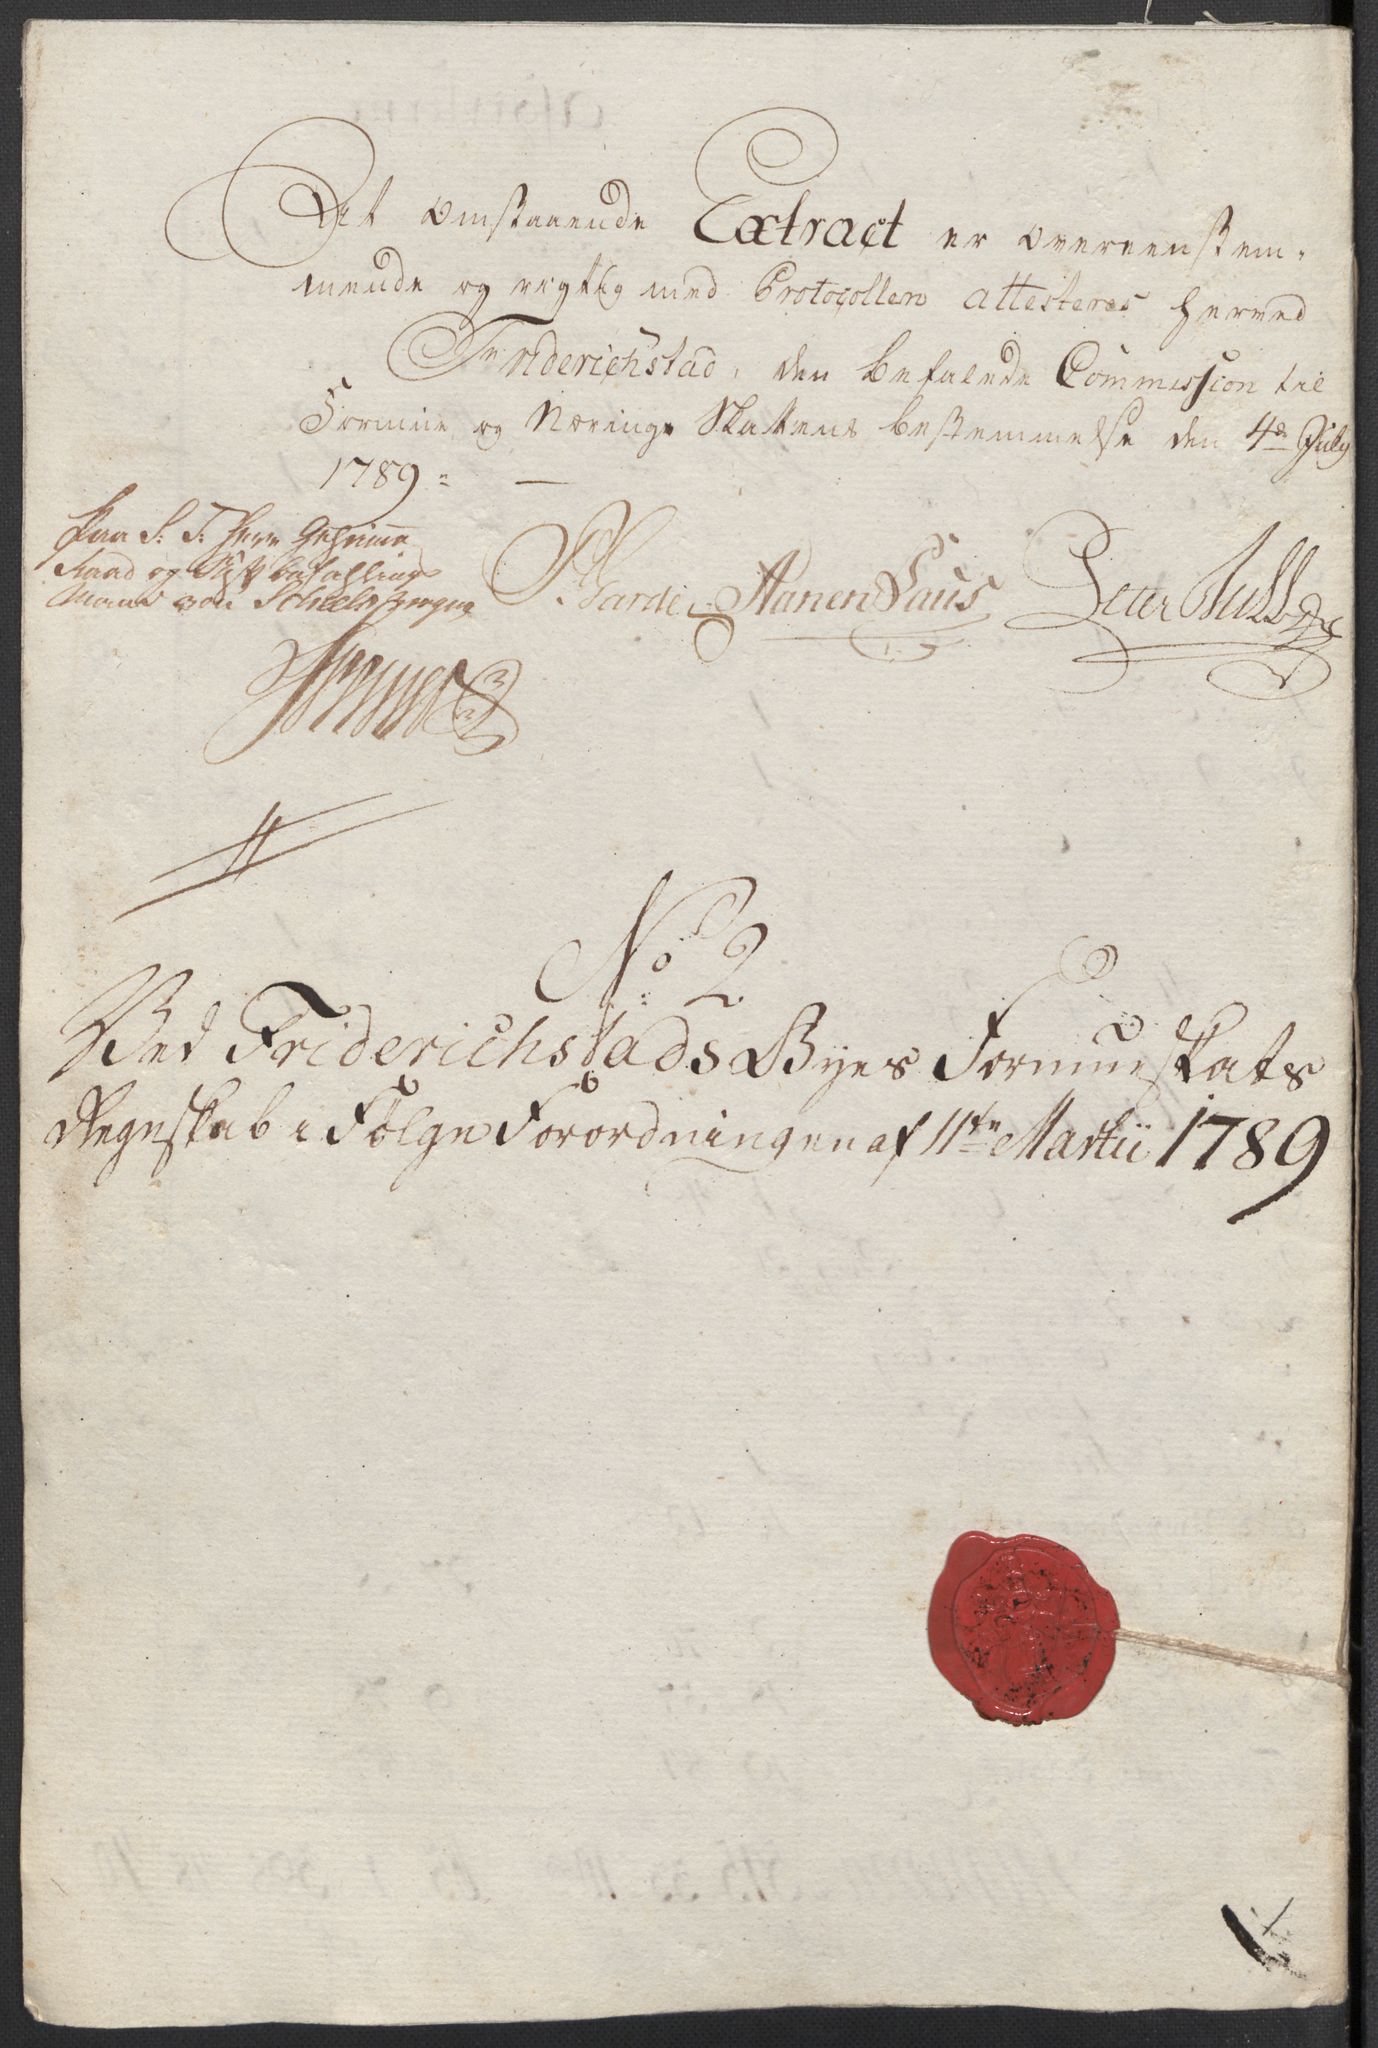 At omstaaende Extract er overeenstem-
mende og rigtig med Protocollen attesteres herved
Friderichstad, den befalede Commission til
Formue og Nærings Skattens bestemmelse den 4de July
1789 =
Paa S: T: Herr Geheime
Raad og Stiftbefalings
Mand von
Aanen Paus Peter
No 2
Ved Friderichstads Byes Formueskats
Regnskab i Følge Forordningen af 11te Martii 1789